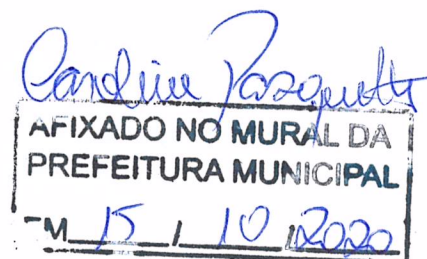 Caroline Pasquetti
AFIXADO NO MURAL DA
PREFEITURA MUNICIPAL
EM 15 / 10 / 2020